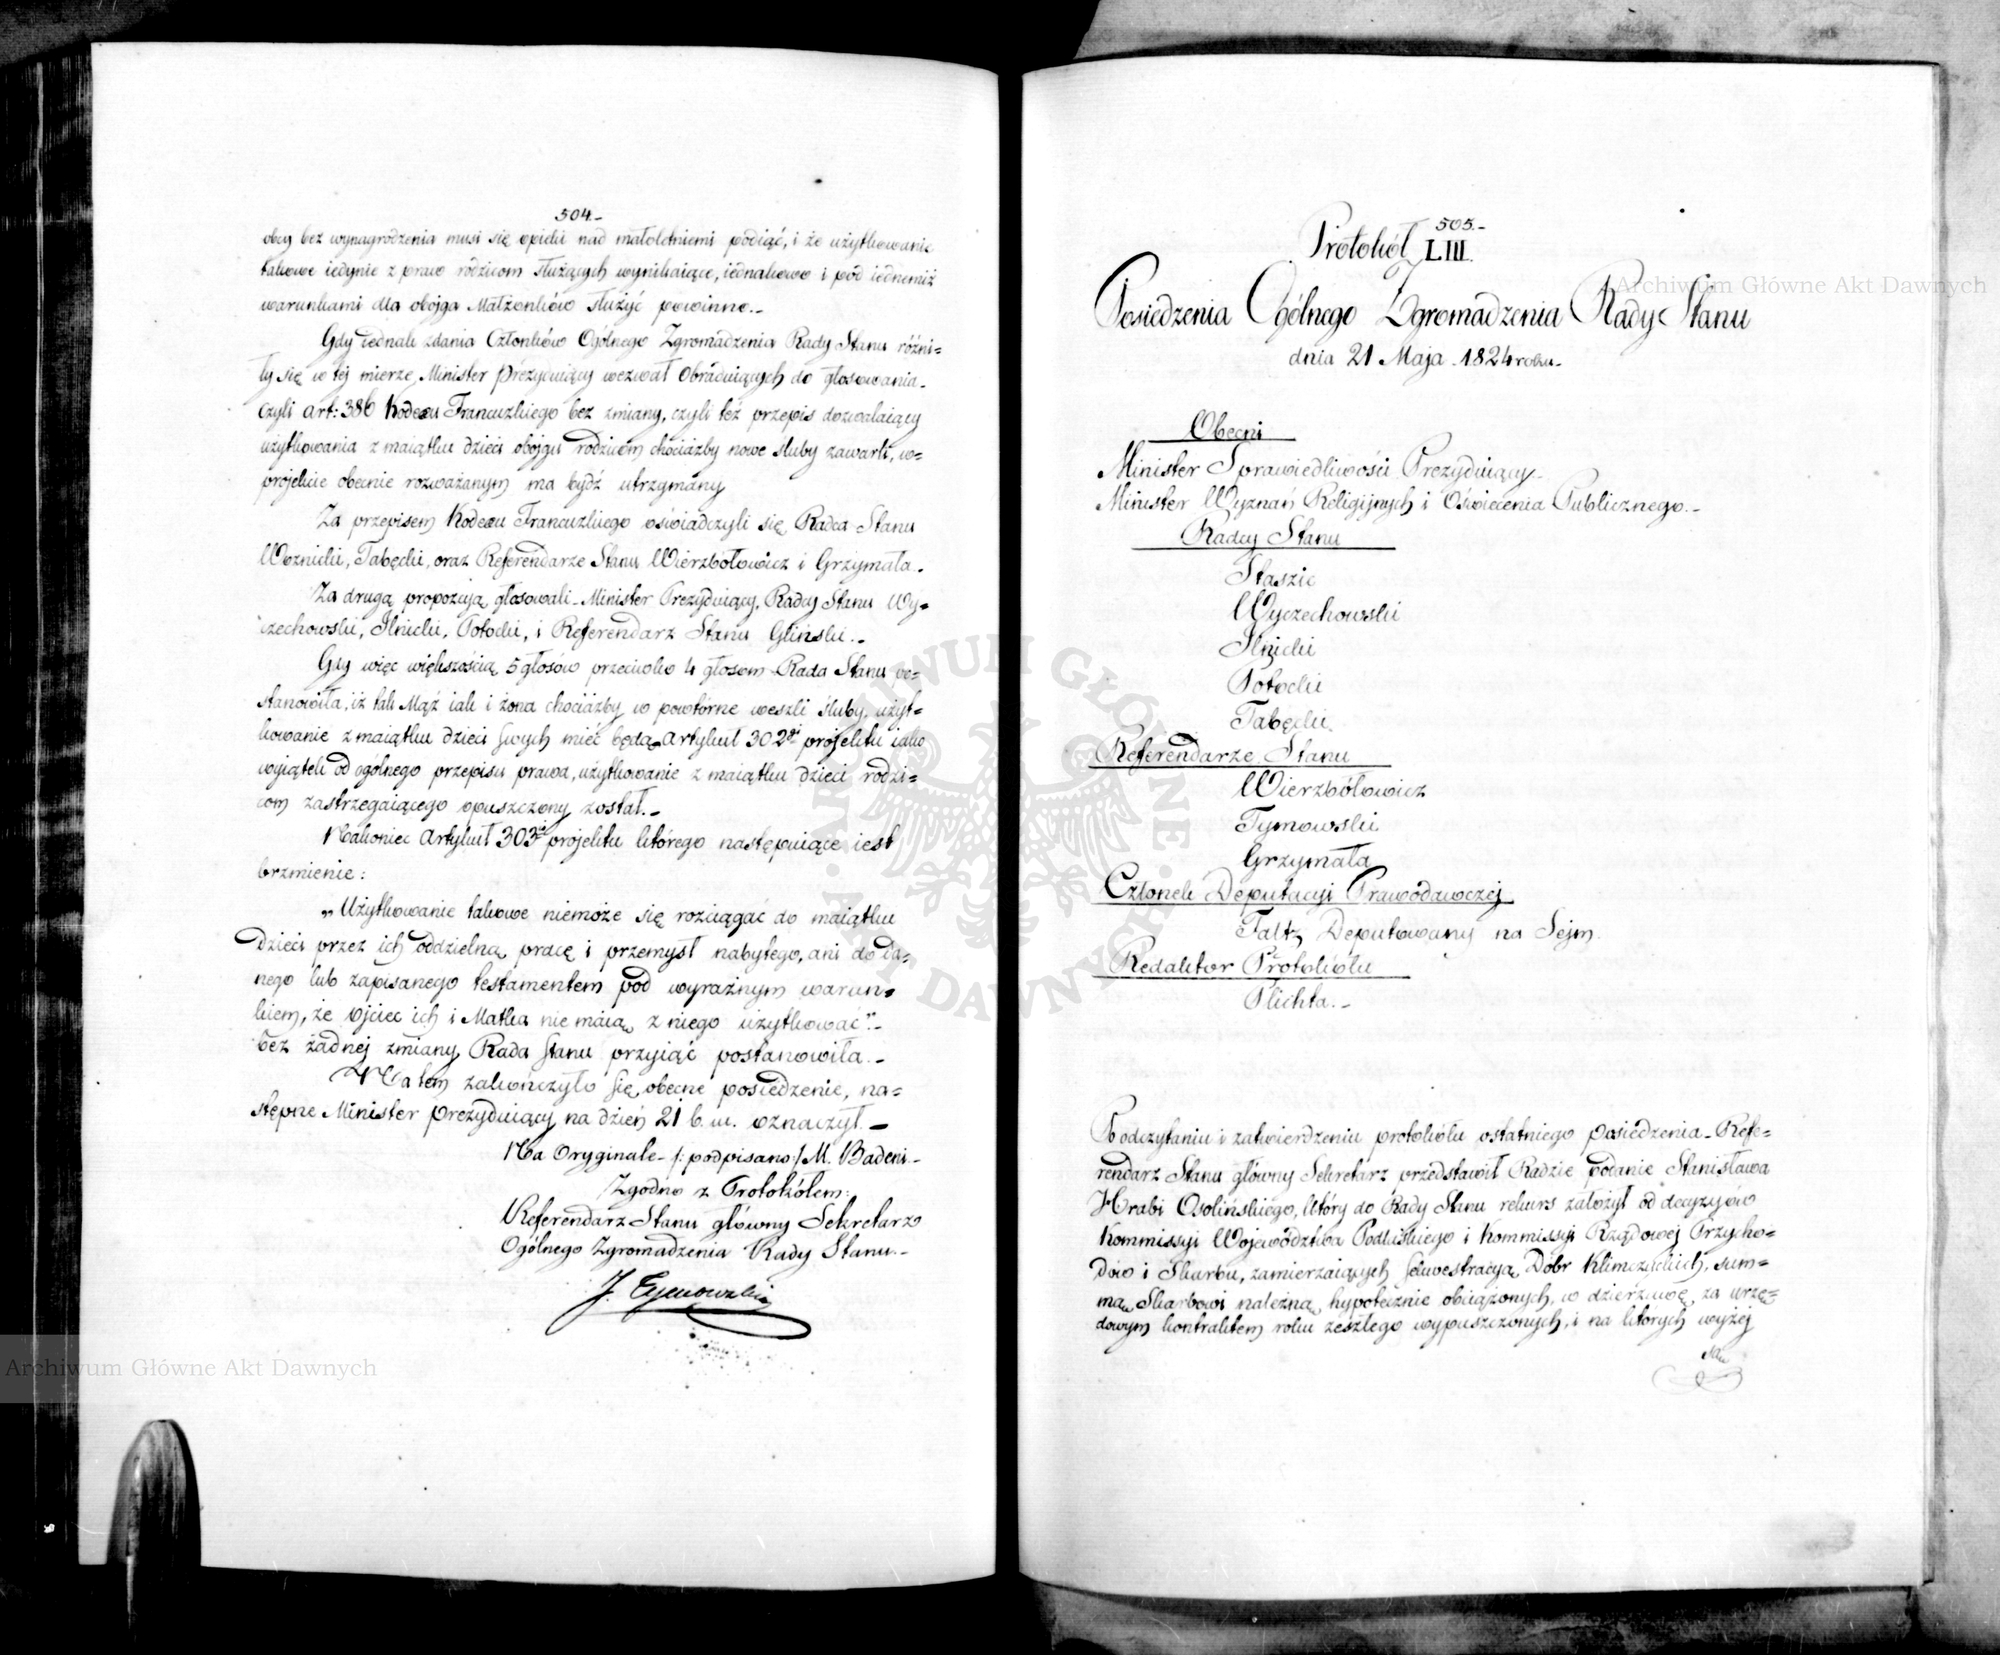 504.-
obcy bez wynagrodzenia musi się opieki nad małoletniemi podiąć, i że użytkowanie
takowe iedynie z praw rodzicom służących wynikaiące, iednakowo i pod iednemiż
warunkami dla obojga Małżonków służyć powinno.-
Gdy iednak zdania Członków Ogólnego Zgromadzenia Rady Stanu różni-
ły się w tej mierze, Minister Prezyduiący wezwał Obraduiących do głosowania.
czyli art: 386 Kodexu Francuzkiego bez zmiany, czyli też przepis dozwalaiący
użytkowania z maiątku dzieci obojgu rodzicom chociażby nowe śluby zawarli, w=
projekcie obecnie rozważanym ma bydź utrzymány
Za przepisem Kodexu Francuzkiego oświadczyli się Radca Stanu
Woznicki, Tabęcki, oraz Referendarze Stanu Wierzbołowicz i Grzymała.
Za drugą propozycją głosowali - Minister Prezyduiący, Radcy Stanu Wy=
czechowski, Ilnicki, Potocki, i Referendarz Stanu Gliński.-
Gdy więc większością 5 głosów przeciwko 4 głosom Rada Stanu po=
stanowiła, iż tak Mąż iak i żona chociażby w powtórne weszli śluby, użyt=
kowanie z maiątku dzieci swych mieć będą, artykuł 302gi projektu iako
wyiątek od ogólnego przepisu prawa, użytkowanie z maiątku dzieci rodzi=
com zastrzegaiącego opuszczony został.-
Nakoniec Artykuł 303ci projektu którego następuiące iest
brzmienie:
„Użytkowanie takowe niemoże się rozciągać do maiątku
dzieci przez ich oddzielną pracę i przemysł nabytego, ani do da=
nego lub zapisanego testamentem pod wyraźnym warun=
kiem, że ojciec ich i Matka nie maią z niego użytkować”.-
bez żadnej zmiany Rada Stanu przyiąć postanowiła.-
Na tem zakończyło się obecne posiedzenie, na=
stępne Minister Prezyduiący na dzień 21 b. m. oznaczył.-
Na Oryginale - /:podpisano:/ M. Badeni -
Zgodno z Protokółem:
Referendarz Stanu główny Sekretarz
Ogólnego Zgromadzenia Rady Stanu.-
J. Tymowski
505.-
Protokół LIII.
Posiedzenia Ogólnego Zgromadzenia Rady Stanu
dnia 21 Maja 1824 roku.
Obecni
Minister Sprawiedliwości Prezyduiący
Minister Wyznań Religijnych i Oświecenia Publicznego.-
Radcy Stanu
Staszic
Wyczechowski
Ilnicki
Potocki
Tabęcki
Referendarze Stanu
Wierzbółowicz
Tymowski
Grzymała
Członek Deputacyi Prawodawczej
Faltz Deputowany na Sejm.
Redaktor Protokółu
Plichta.-
Po odczytaniu i zatwierdzeniu protokółu ostatniego posiedzenia - Refe=
rendarz Stanu główny Sekretarz przedstawił Radzie podanie Stanisława
Hrabi Osolińskiego, który do Rady Stanu rekurs założył od decyzyów
Kommissyi Województwa Podlaskiego i Kommissyi Rządowej Przycho=
dów i Skarbu, zamierzaiących sekwestracyą Dóbr Klimczyckich, sum=
mą Skarbowi należną hypotecznie obciążonych, w dzierżawę, za urzę=
dowym kontraktem roku zeszłego wypuszczonych, i na których wyżej
Archiwum Główne Akt Dawnych
Archiwum Główne Akt Dawnych
ARCHIWUM GŁÓWNE AKT DAWNYCH